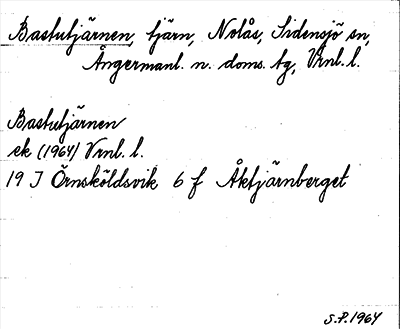 Bastutjärnen, tjärn, Nolås, Sidensjö sn,
Ångermanl. n. doms. tg, Vrnl. l.
Bastutjärnen
ek (1964) Vrnl. l.
19 J Örnsköldsvik 6 f Åktjärnberget
S.P. 1964